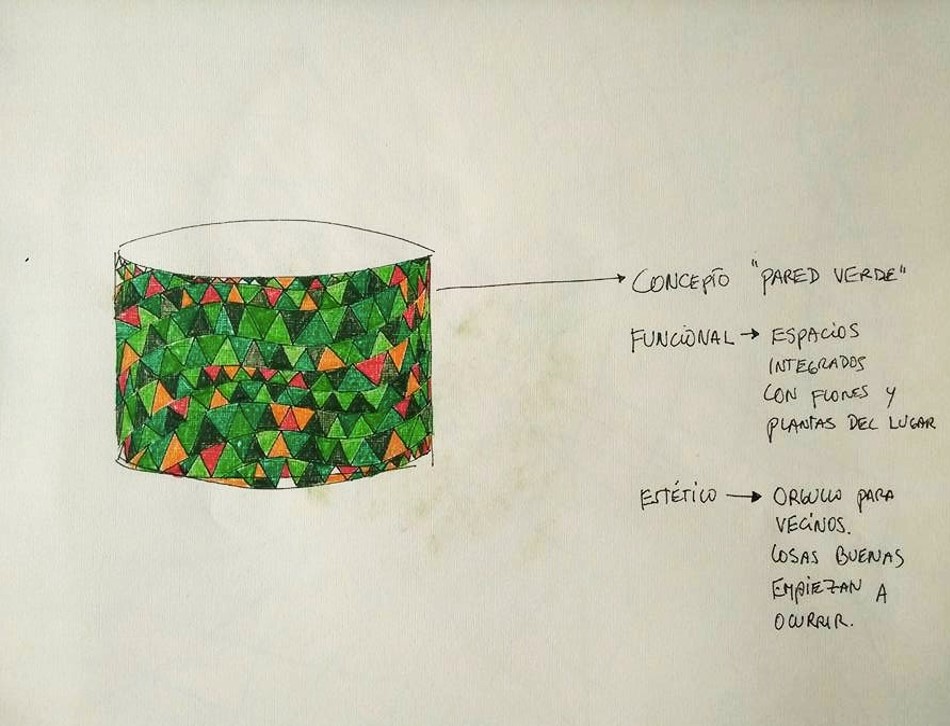 CONCEPTO "PARED VERDE"
FUNCIONAL → ESPACIOS
INTEGRADOS
CON FLORES Y
PLANTAS DEL LUGAR
ESTÉTICO → ORGULLO PARA
VECINOS.
COSAS BUENAS
EMPIEZAN A
OCURRIR.